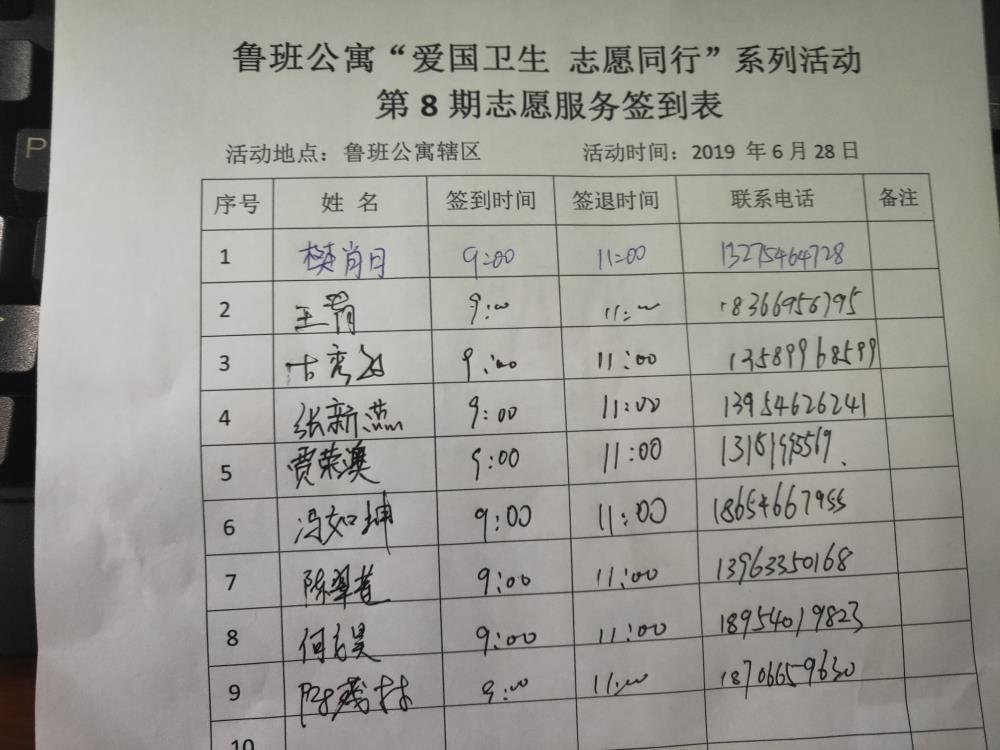 鲁班公寓“爱国卫生 志愿同行”系列活动
第 8 期志愿服务签到表
活动地点：鲁班公寓辖区 活动时间：2019 年 6 月 28 日
序号 姓 名 签到时间 签退时间 联系电话 备注
1 樊肖月 9:00 11:00 13275464728
2 王 9:00 11:00 18366956795
3 9:00 11:00 13589968599
4 张新燕 9:00 11:00 13954626241
5 贾荣澳 9:00 11:00
6 冯如坤 9:00 11:00 18654667955
7 陈翠莲 9:00 11:00 13963350168
8 何昊 9:00 11:00 18954019823
9 9:00 11:00 18706659630
10
P